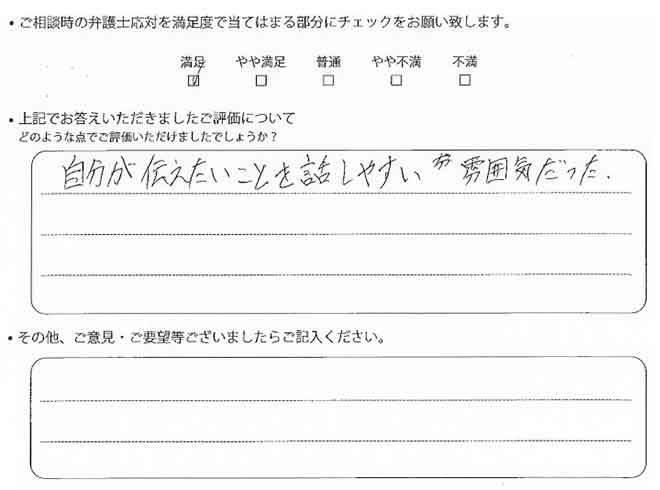 ・ご相談時の弁護士応対を満足度で当てはまる部分にチェックをお願い致します。
満足 やや満足 普通 やや不満 不満
・上記でお答えいただきましたご評価について
どのような点でご評価いただけましたでしょうか?
自分が伝えたいことを話しやすい雰囲気だった.
・その他、ご意見・ご要望等ございましたらご記入ください。